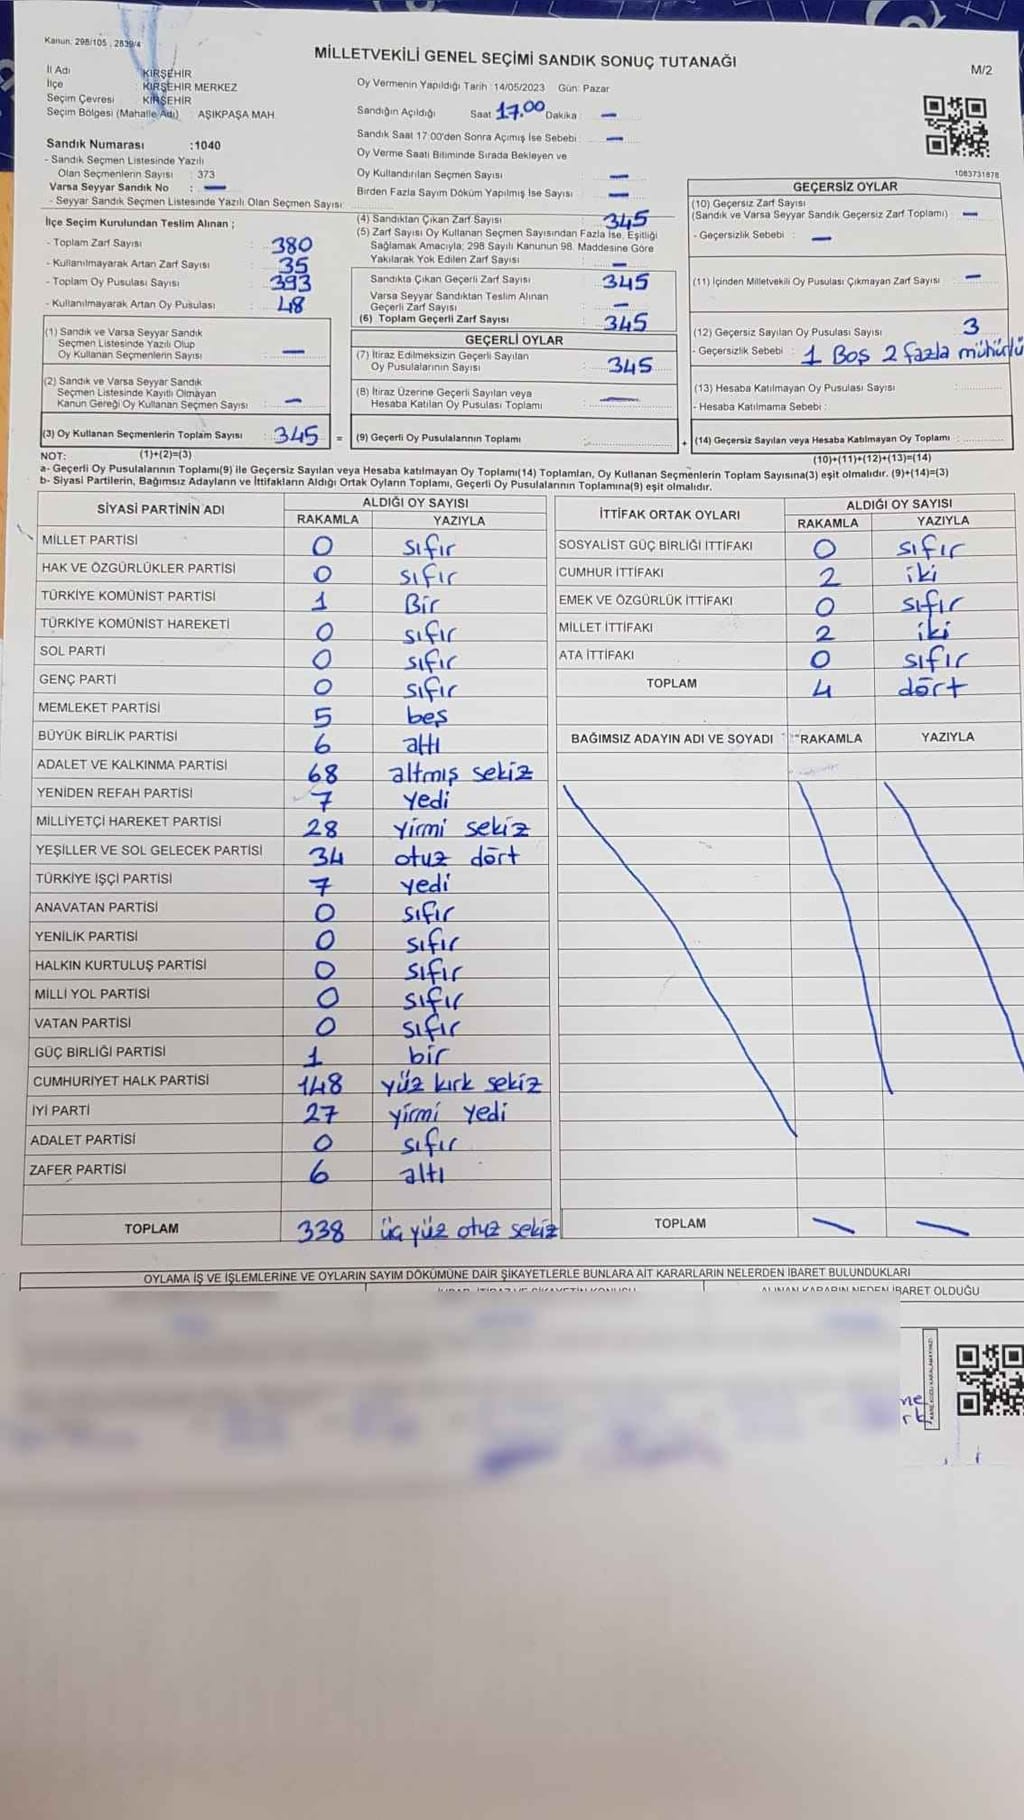 Kanun: 298/105 , 2839/4
MİLLETVEKİLİ GENEL SEÇİMİ SANDIK SONUÇ TUTANAĞI
M/2
İl Adı KIRŞEHİR
İlçe KIRŞEHİR MERKEZ
Seçim Çevresi KIRŞEHİR
Seçim Bölgesi (Mahalle Adı) AŞIKPAŞA MAH
Sandık Numarası :1040
- Sandık Seçmen Listesinde Yazılı
Olan Seçmenlerin Sayısı : 373
Varsa Seyyar Sandık No : —
- Seyyar Sandık Seçmen Listesinde Yazılı Olan Seçmen Sayısı:
Oy Vermenin Yapıldığı Tarih :14/05/2023 Gün: Pazar
Sandığın Açıldığı Saat 17.00 Dakika —
Sandık Saat 17:00'den Sonra Açımış İse Sebebi : —
Oy Verme Saati Bitiminde Sırada Bekleyen ve
Oy Kullandırılan Seçmen Sayısı : —
Birden Fazla Sayım Döküm Yapılmış İse Sayısı : —
1083731878
İlçe Seçim Kurulundan Teslim Alınan ;
- Toplam Zarf Sayısı : 380
- Kullanılmayarak Artan Zarf Sayısı : 35
- Toplam Oy Pusulası Sayısı : 393
- Kullanılmayarak Artan Oy Pusulası : 48
(1) Sandık ve Varsa Seyyar Sandık
Seçmen Listesinde Yazılı Olup
Oy Kullanan Seçmenlerin Sayısı : —
(2) Sandık ve Varsa Seyyar Sandık
Seçmen Listesinde Kayıtlı Olmayan
Kanun Gereği Oy Kullanan Seçmen Sayısı : —
(3) Oy Kullanan Seçmenlerin Toplam Sayısı : 345 =
(4) Sandıktan Çıkan Zarf Sayısı : 345
(5) Zarf Sayısı Oy Kullanan Seçmen Sayısından Fazla İse, Eşitliği
Sağlamak Amacıyla; 298 Sayılı Kanunun 98. Maddesine Göre
Yakılarak Yok Edilen Zarf Sayısı : —
Sandıkta Çıkan Geçerli Zarf Sayısı : 345
Varsa Seyyar Sandıktan Teslim Alınan
Geçerli Zarf Sayısı : —
(6) Toplam Geçerli Zarf Sayısı : 345
GEÇERLİ OYLAR
(7) İtiraz Edilmeksizin Geçerli Sayılan
Oy Pusulalarının Sayısı : 345
(8) İtiraz Üzerine Geçerli Sayılan veya
Hesaba Katılan Oy Pusulası Toplamı : —
(9) Geçerli Oy Pusulalarının Toplamı : +
GEÇERSİZ OYLAR
(10) Geçersiz Zarf Sayısı
(Sandık ve Varsa Seyyar Sandık Geçersiz Zarf Toplamı) : —
- Geçersizlik Sebebi : —
(11) İçinden Milletvekili Oy Pusulası Çıkmayan Zarf Sayısı : —
(12) Geçersiz Sayılan Oy Pusulası Sayısı : 3
- Geçersizlik Sebebi : 1 Boş 2 fazla mühürlü
(13) Hesaba Katılmayan Oy Pusulası Sayısı :
- Hesaba Katılmama Sebebi :
(14) Geçersiz Sayılan veya Hesaba Katılmayan Oy Toplamı :
NOT: (1)+(2)=(3)
(10)+(11)+(12)+(13)=(14)
a- Geçerli Oy Pusulalarının Toplamı(9) ile Geçersiz Sayılan veya Hesaba katılmayan Oy Toplamı(14) Toplamları, Oy Kullanan Seçmenlerin Toplam Sayısına(3) eşit olmalıdır. (9)+(14)=(3)
b- Siyasi Partilerin, Bağımsız Adayların ve İttifakların Aldığı Ortak Oyların Toplamı, Geçerli Oy Pusulalarının Toplamına(9) eşit olmalıdır.
SİYASİ PARTİNİN ADI
ALDIĞI OY SAYISI
RAKAMLA YAZIYLA
MİLLET PARTİSİ 0 sıfır
HAK VE ÖZGÜRLÜKLER PARTİSİ 0 sıfır
TÜRKİYE KOMÜNİST PARTİSİ 1 Bir
TÜRKİYE KOMÜNİST HAREKETİ 0 sıfır
SOL PARTİ 0 sıfır
GENÇ PARTİ 0 sıfır
MEMLEKET PARTİSİ 5 beş
BÜYÜK BİRLİK PARTİSİ 6 altı
ADALET VE KALKINMA PARTİSİ 68 altmış sekiz
YENİDEN REFAH PARTİSİ 7 yedi
MİLLİYETÇİ HAREKET PARTİSİ 28 yirmi sekiz
YEŞİLLER VE SOL GELECEK PARTİSİ 34 otuz dört
TÜRKİYE İŞÇİ PARTİSİ 7 yedi
ANAVATAN PARTİSİ 0 sıfır
YENİLİK PARTİSİ 0 sıfır
HALKIN KURTULUŞ PARTİSİ 0 sıfır
MİLLİ YOL PARTİSİ 0 sıfır
VATAN PARTİSİ 0 sıfır
GÜÇ BİRLİĞİ PARTİSİ 1 bir
CUMHURİYET HALK PARTİSİ 148 yüz kırk sekiz
İYİ PARTİ 27 yirmi yedi
ADALET PARTİSİ 0 sıfır
ZAFER PARTİSİ 6 altı
TOPLAM 338 üç yüz otuz sekiz
İTTİFAK ORTAK OYLARI
ALDIĞI OY SAYISI
RAKAMLA YAZIYLA
SOSYALİST GÜÇ BİRLİĞİ İTTİFAKI 0 sıfır
CUMHUR İTTİFAKI 2 iki
EMEK VE ÖZGÜRLÜK İTTİFAKI 0 sıfır
MİLLET İTTİFAKI 2 iki
ATA İTTİFAKI 0 sıfır
TOPLAM 4 dört
BAĞIMSIZ ADAYIN ADI VE SOYADI RAKAMLA YAZIYLA
TOPLAM — —
OYLAMA İŞ VE İŞLEMLERİNE VE OYLARIN SAYIM DÖKÜMÜNE DAİR ŞİKAYETLERLE BUNLARA AİT KARARLARIN NELERDEN İBARET BULUNDUKLARI
ALINAN KARARIN NEDEN İBARET OLDUĞU